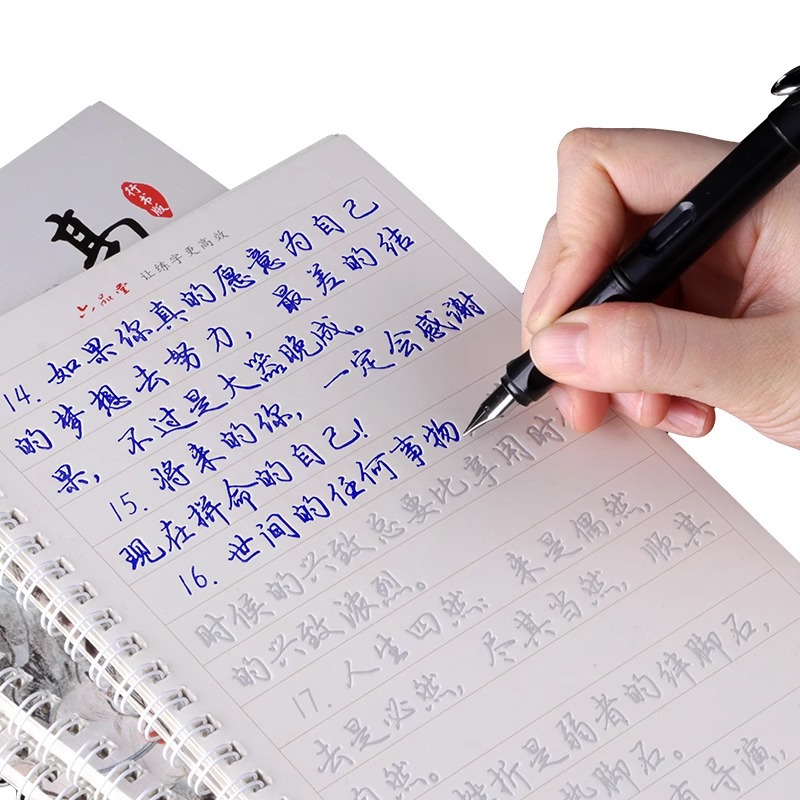 行书版
六品堂 让练字更高效
14. 如果你真的愿意为自己
的梦想去努力，最差的结
果，不过是大器晚成。
15. 将来的你，一定会感谢
现在拼命的自己！
16. 世间的任何事物
总要比享用时
时候的兴致浓烈。
的兴致
17. 人生四然：来是偶然，
去是必然，尽其当然，顺其
自然。
挫折是弱者的绊脚石，
垫脚石。
有导演，